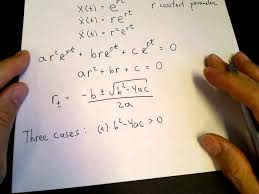 x(t) = e^{rt}
ẋ(t) = re^{rt} r constant parameter
ar²e^{rt} + bre^{rt} + ce^{rt} = 0
ar² + br + c = 0
r± = (-b ± √(b²-4ac)) / 2a
Three cases: (i) b²-4ac > 0